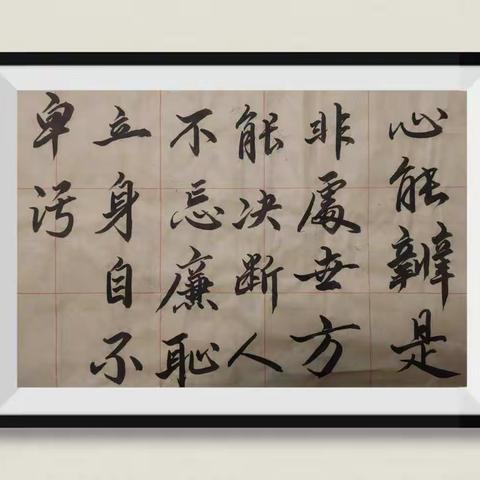 心能辨是
非處世方
能决断人
不忘廉恥
立身自不
卑污